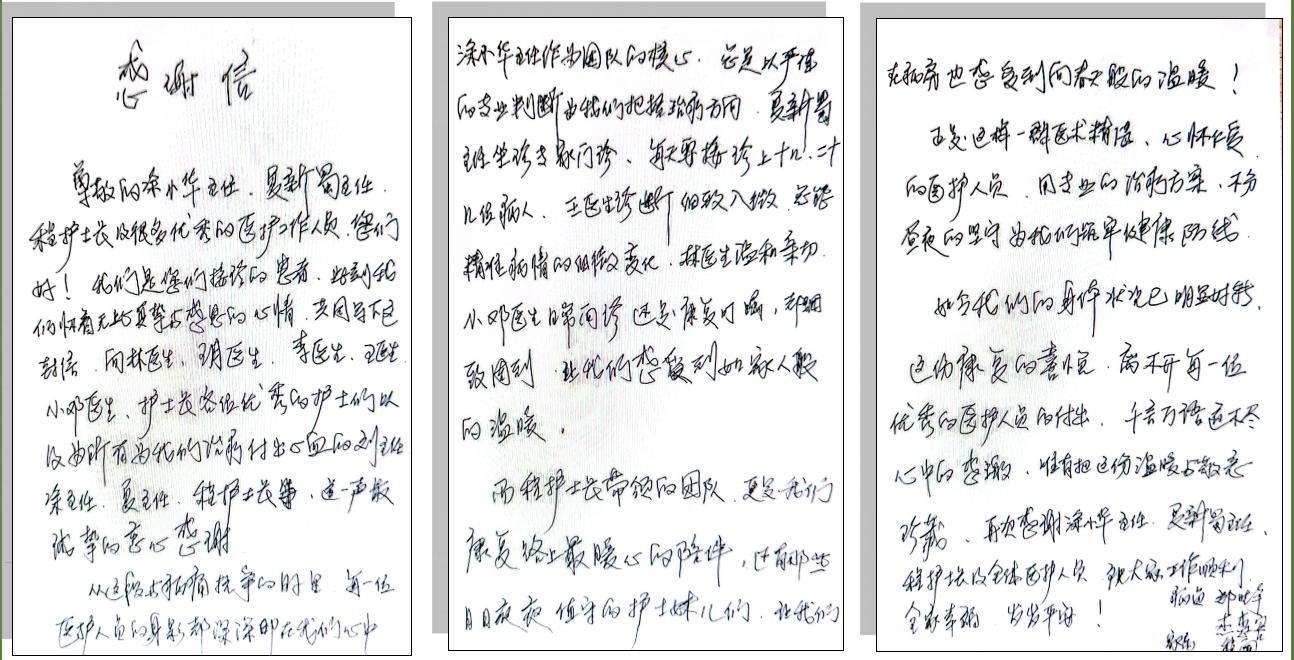 感谢信
尊敬的涂小华主任、夏新蜀主任、
程护士长及很多优秀的医护工作人员、您们
好！我们是您们接诊的患者，
们怀着无比真挚与感恩的心情，共同写下这
封信，向林医生、王医生、李医生、王医生、
小邓医生、护士长各位优秀的护士们以
及为所有为我们治病付出心血的刘主任
涂主任、夏主任、程护士长等，道一声最
诚挚的衷心感谢
从这段与病痛抗争的时日里，每一位
医护人员的身影都深深印在我们心中
涂小华主任作为团队的核心，总是以严谨
的专业判断为我们把握治病方向，夏新蜀
主任坐诊专家门诊，每天要接诊上十几、二十
几位病人，王医生诊断细致入微，总能
精准病情的细微变化，林医生温和亲切，
小邓医生日常问诊还是康复叮嘱，都细
致周到，让我们感受到如家人般
的温暖。
而程护士长带领的团队，更是我们
康复路上最暖心的陪伴，还有那些
日日夜夜值守的护士妹儿们，让我们
在病房也感受到向春天般的温暖！
正是这样一群医术精湛、心怀仁爱
的医护人员，用专业的治病方案，不分
昼夜的坚守为我们筑牢健康防线
如今我们的身体状况已明显好转，
这份康复的喜悦，离不开每一位
优秀的医护人员的付出，千言万语道不尽
心中的感激，唯有把这份温暖与敬意
珍藏，再次感谢涂小华主任、夏新蜀主任、
程护士长及全体医护人员，祝大家工作顺利，
全家幸福，岁岁平安！
病人
家属